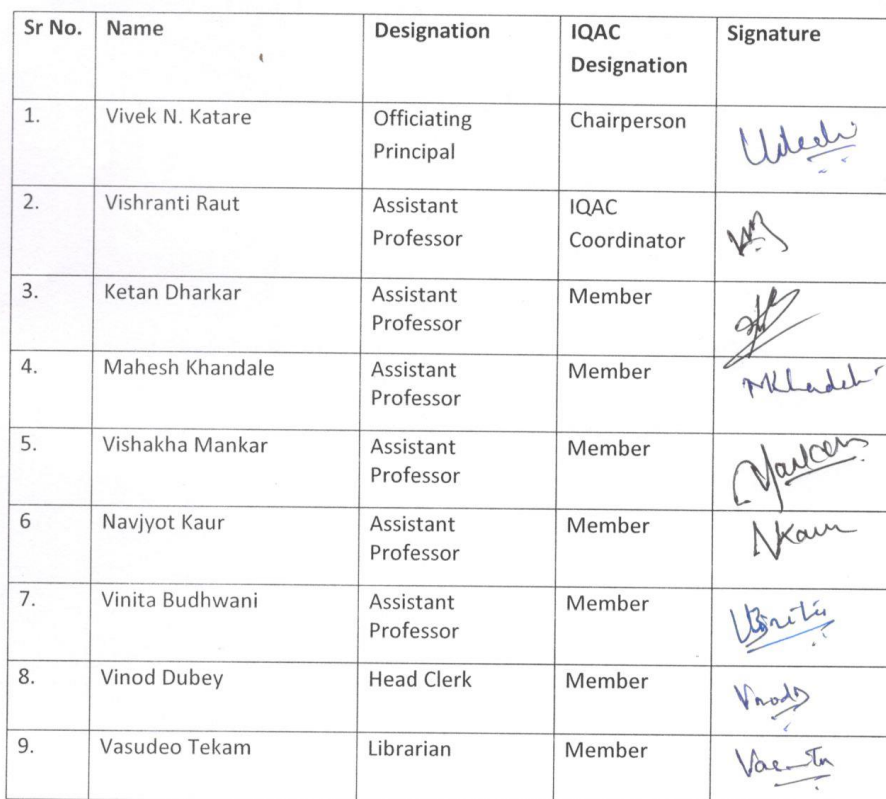 Sr No. Name Designation IQAC Designation Signature
1. Vivek N. Katare Officiating Principal Chairperson
2. Vishranti Raut Assistant Professor IQAC Coordinator
3. Ketan Dharkar Assistant Professor Member
4. Mahesh Khandale Assistant Professor Member
5. Vishakha Mankar Assistant Professor Member
6 Navjyot Kaur Assistant Professor Member NKaur
7. Vinita Budhwani Assistant Professor Member
8. Vinod Dubey Head Clerk Member
9. Vasudeo Tekam Librarian Member